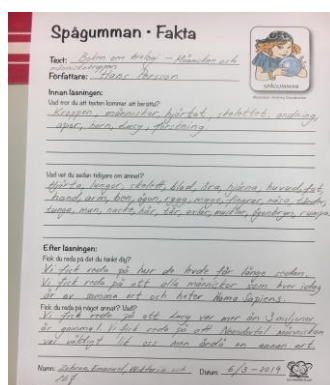 Spågumman • Fakta
Text: Boken om biologi – Människan och
människokroppen
Författare: Hans Persson
SPÅGUMMAN
Innan läsningen:
Vad tror du att texten kommer att berätta?
Kroppen, människor, hjärtat, skelettet, andning,
apor, barn, Lucy, forskning.
Vad vet du sedan tidigare om ämnet?
Hjärta, lungor, skelett, blod, öra, hjärna, huvud, fot,
hand, arm, ben, ögon, rygg, mage, fingrar, näsa, tänder,
tunga, mun, nacke, hår, tår, axlar, muskler, ögonbryn, rumpa
Efter läsningen:
Fick du reda på det du tänkt dig?
Vi fick reda på hur de levde för länge sedan.
Vi fick reda på att alla människor som lever idag
är av samma art och heter Homo Sapiens.
Fick du reda på något annat? Vad?
Vi fick reda på att Lucy var mer än 3 miljoner
år gammal. Vi fick reda på att Neandertal människan
var väldigt lik oss men ändå en annan art.
Namn: Emanuel, Viktoria och
Datum: 6/3-2019